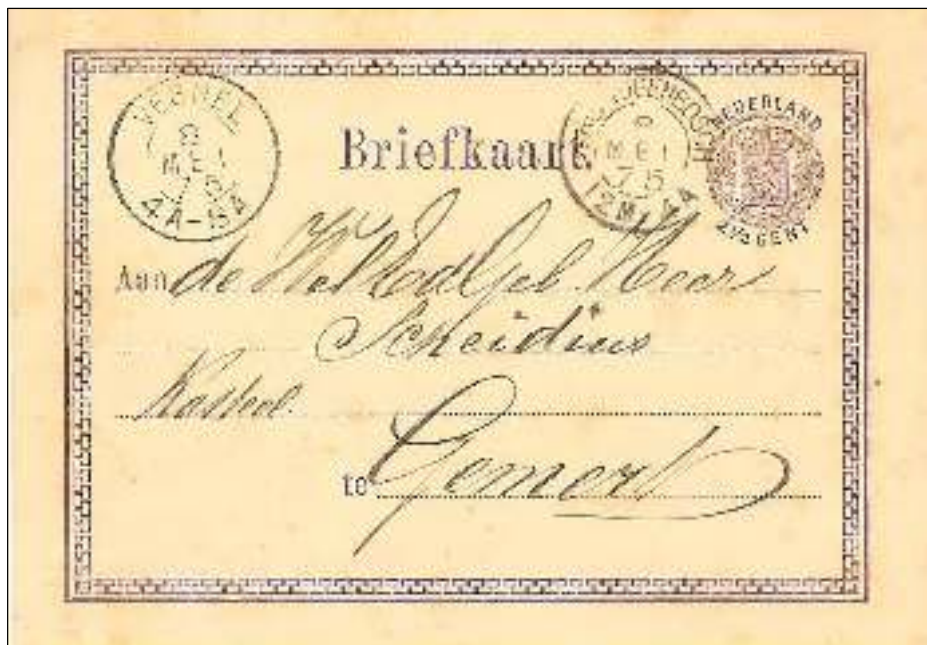 VEGHEL
8
MEI
75
4A-8A
Briefkaart
8
MEI
75
12M-4A
NEDERLAND
2½ CENT
Aan de Wel Edelgeb. Heer
Scheidius
Kasteel.
te Gemert